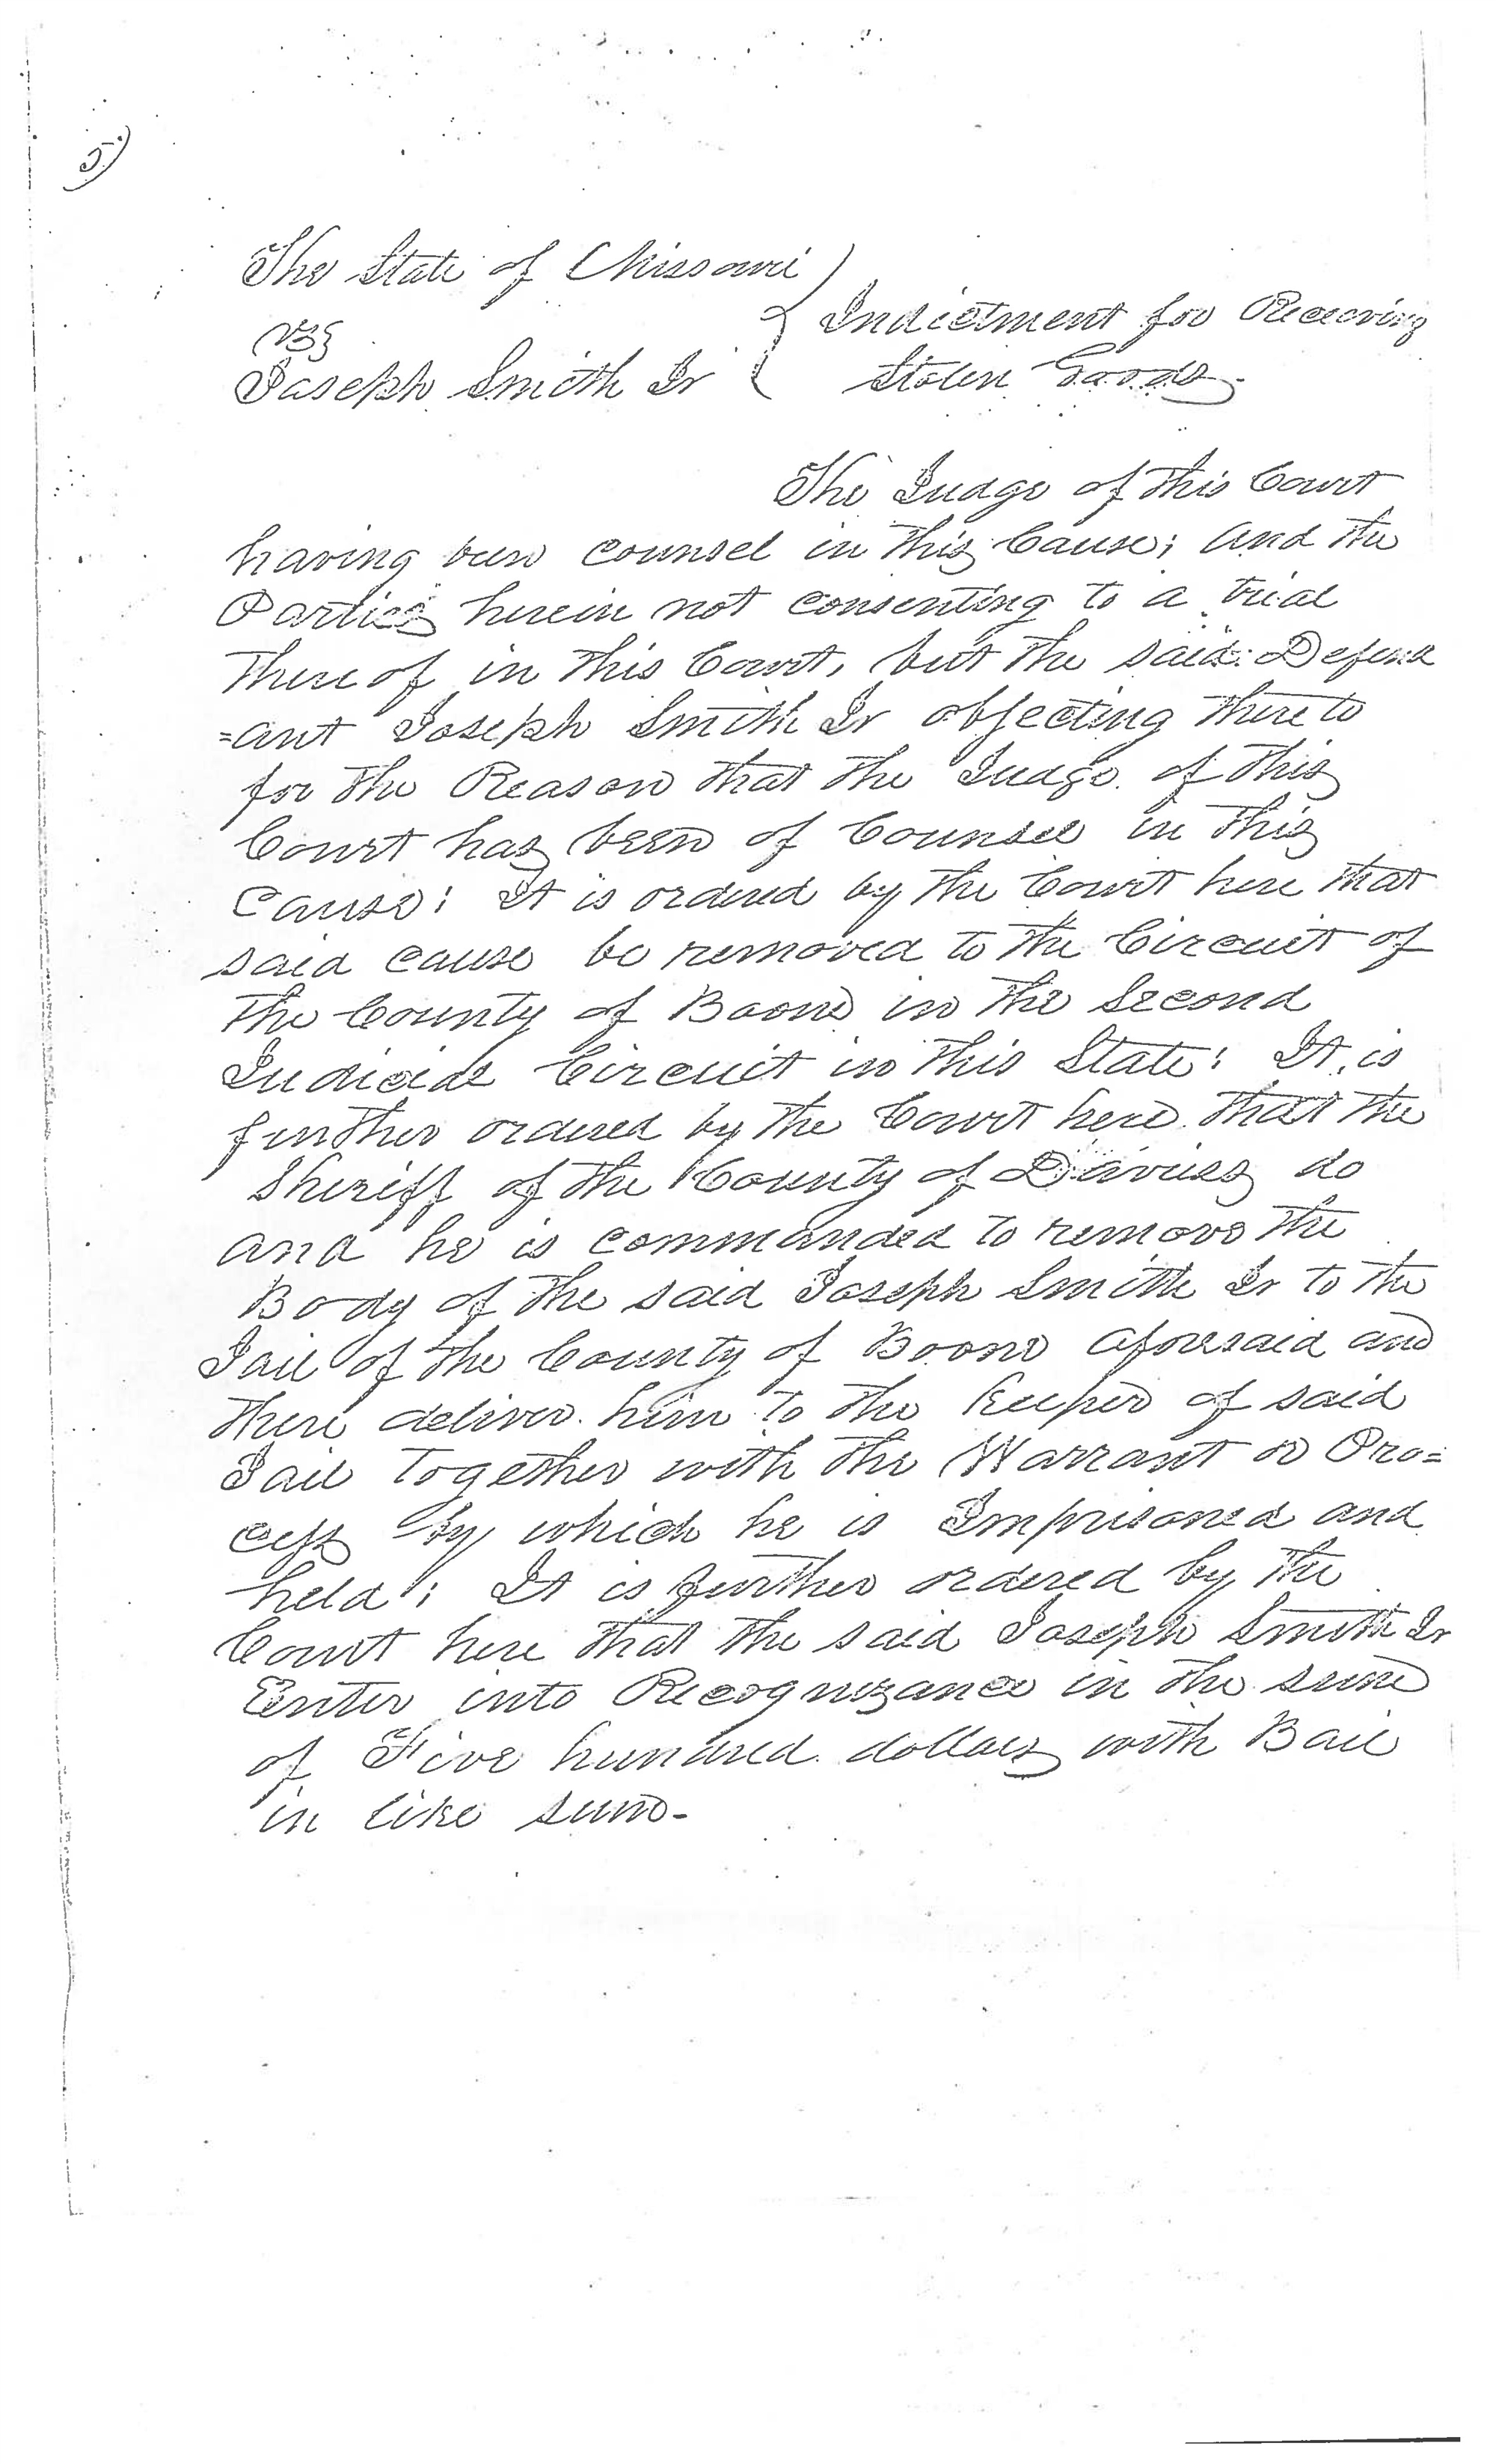 5)
The State of Missouri
vs
Joseph Smith Jr
Indictment for Receiving
Stolen Goods
The Judge of this Court
having been counsel in this Cause; and the
Parties herein not consenting to a trial
thereof in this Court, but the said Defend
=ant Joseph Smith Jr objecting thereto
for the Reason that the Judge of this
Court has been of Counsel in this
Cause; It is ordered by the Court here that
said cause be removed to the Circuit of
the County of Boone in the Second
Judicial Circuit in this State; It is
further ordered by the Court here that the
Sheriff of the County of Daviess do
and he is commanded to remove the
Body of the said Joseph Smith Jr to the
Jail of the County of Boone aforesaid and
there deliver him to the Keeper of said
Jail together with the Warrant or Pro=
cess by which he is Imprisoned and
held; It is further ordered by the
Court here that the said Joseph Smith Jr
Enter into Recognizance in the sum
of Five hundred dollars with Bail
in like sum-